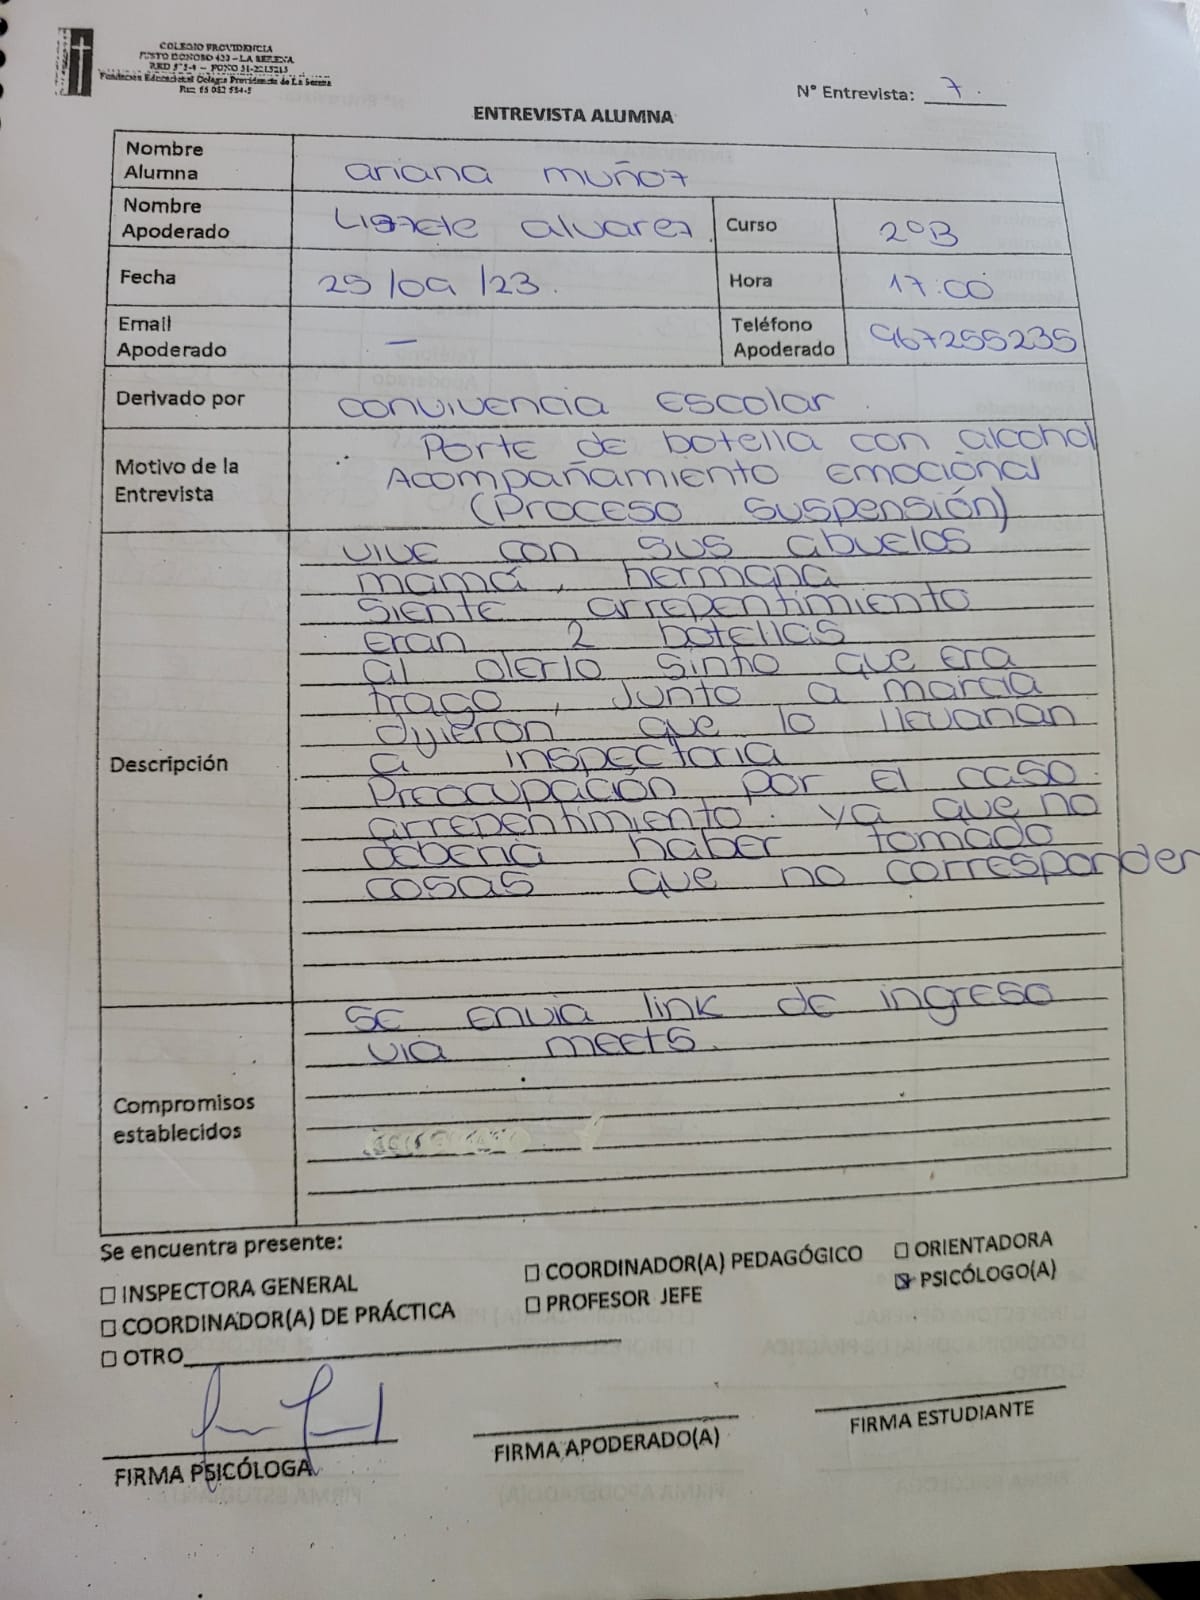 COLEGIO PROVIDENCIA
JUSTO DONOSO 420 – LA SERENA
Fundación Educacional Colegio Providencia de La Serena
N° Entrevista: 7.
ENTREVISTA ALUMNA
Nombre Alumna
ariana muñoz
Nombre Apoderado
Lissete alvarez
Curso
2°B
Fecha
25/09/23.
Hora
17:00
Email Apoderado
—
Teléfono Apoderado
967255235
Derivado por
convivencia Escolar
Motivo de la Entrevista
Porte de botella con alcohol
Acompañamiento Emocional
(Proceso suspensión)
Descripción
vive con sus abuelos
mamá, hermana
siente arrepentimiento
eran 2 botellas
al olerlo sintio que era
trago, junto a marcia
dijeron que lo llevarian
a inspectoria
Preocupación por el caso.
arrepentimiento. ya que no
deberia haber tomado
cosas que no corresponden
Compromisos establecidos
se envia link de ingreso
via meets.
Se encuentra presente:
☐ INSPECTORA GENERAL
☐ COORDINADOR(A) PEDAGÓGICO
☐ ORIENTADORA
☐ COORDINADOR(A) DE PRÁCTICA
☐ PROFESOR JEFE
☒ PSICÓLOGO(A)
☐ OTRO
FIRMA PSICÓLOGA
FIRMA APODERADO(A)
FIRMA ESTUDIANTE